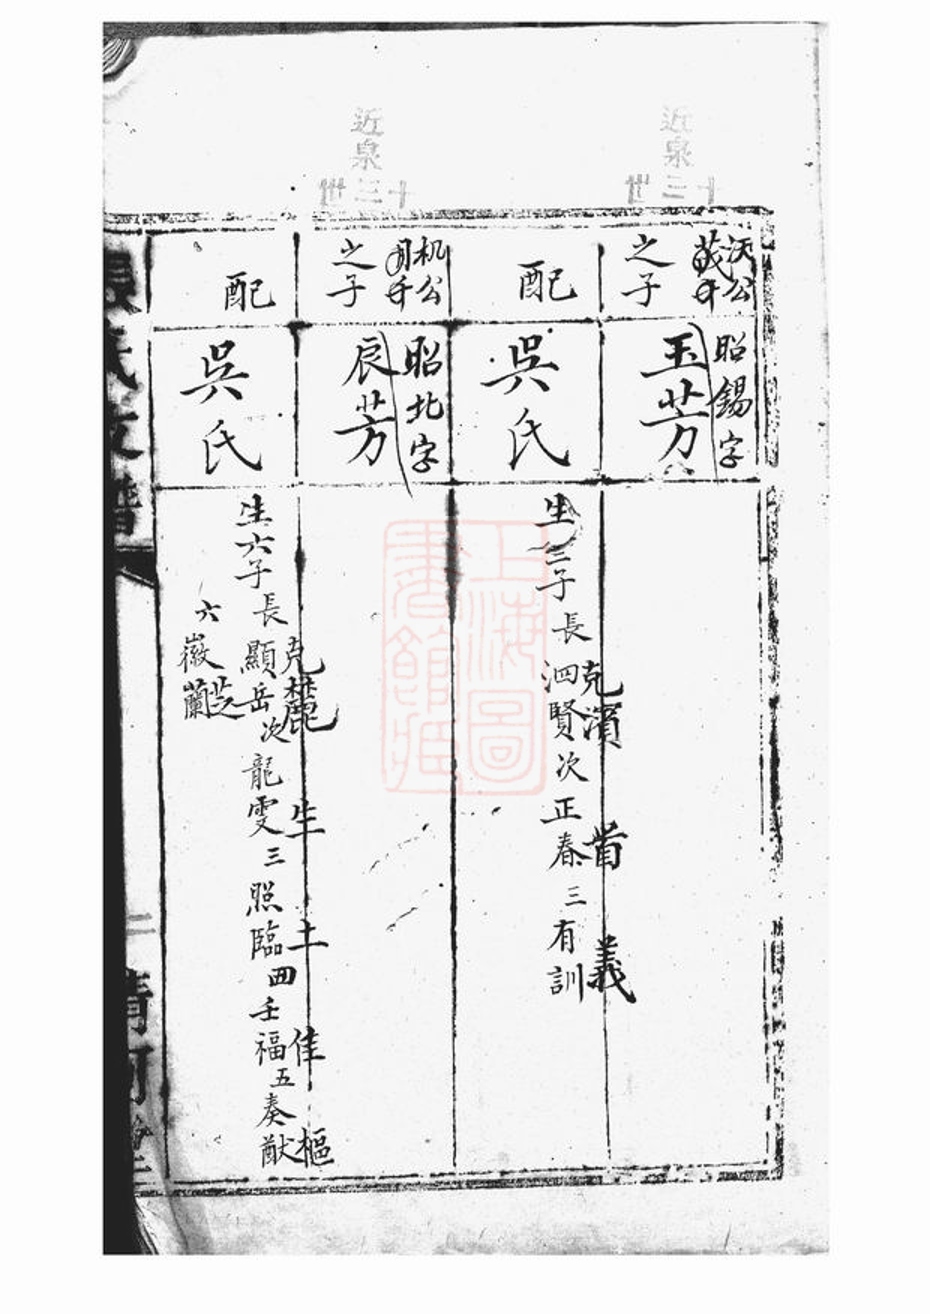 近泉
十三世
近泉
十三世
公
之子
昭錫字
玉芳
配
吳氏
生三子長泗賢次正春三有訓
克濱
義
机公
之子
昭北字
辰芳
配
吳氏
生六子長顯岳次龍雯三照臨四壬福五奏猷
克麓
生
土
佳
樞
六徽蘭
芝
氏
譜
清河
上海圖書館藏